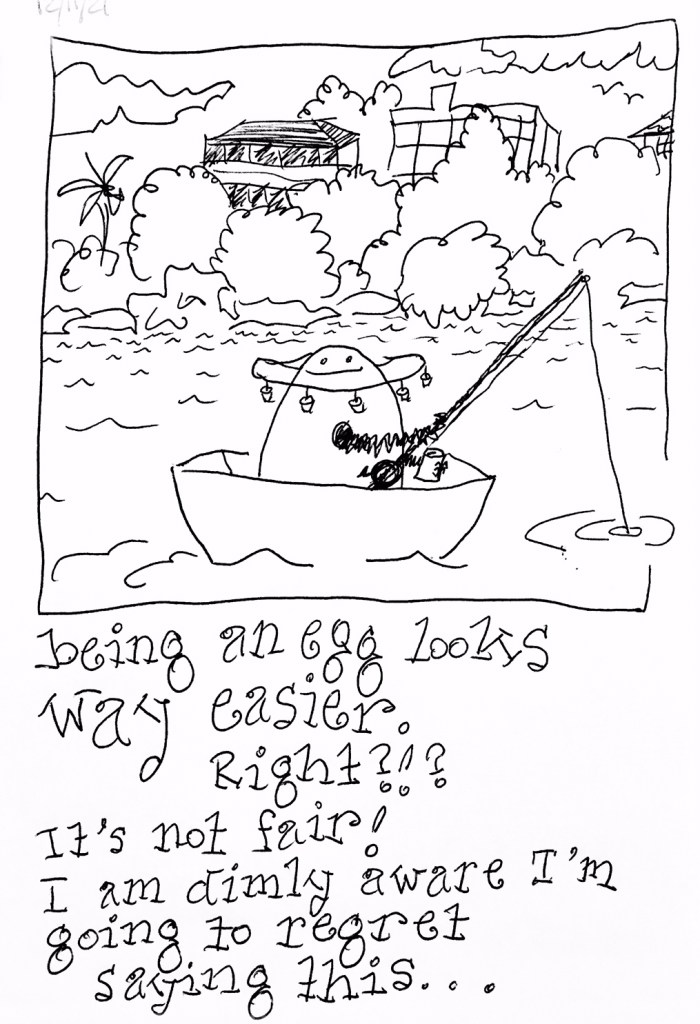 being an egg looks
way easier.
Right?!?
It's not fair!
I am dimly aware I'm
going to regret
saying this...